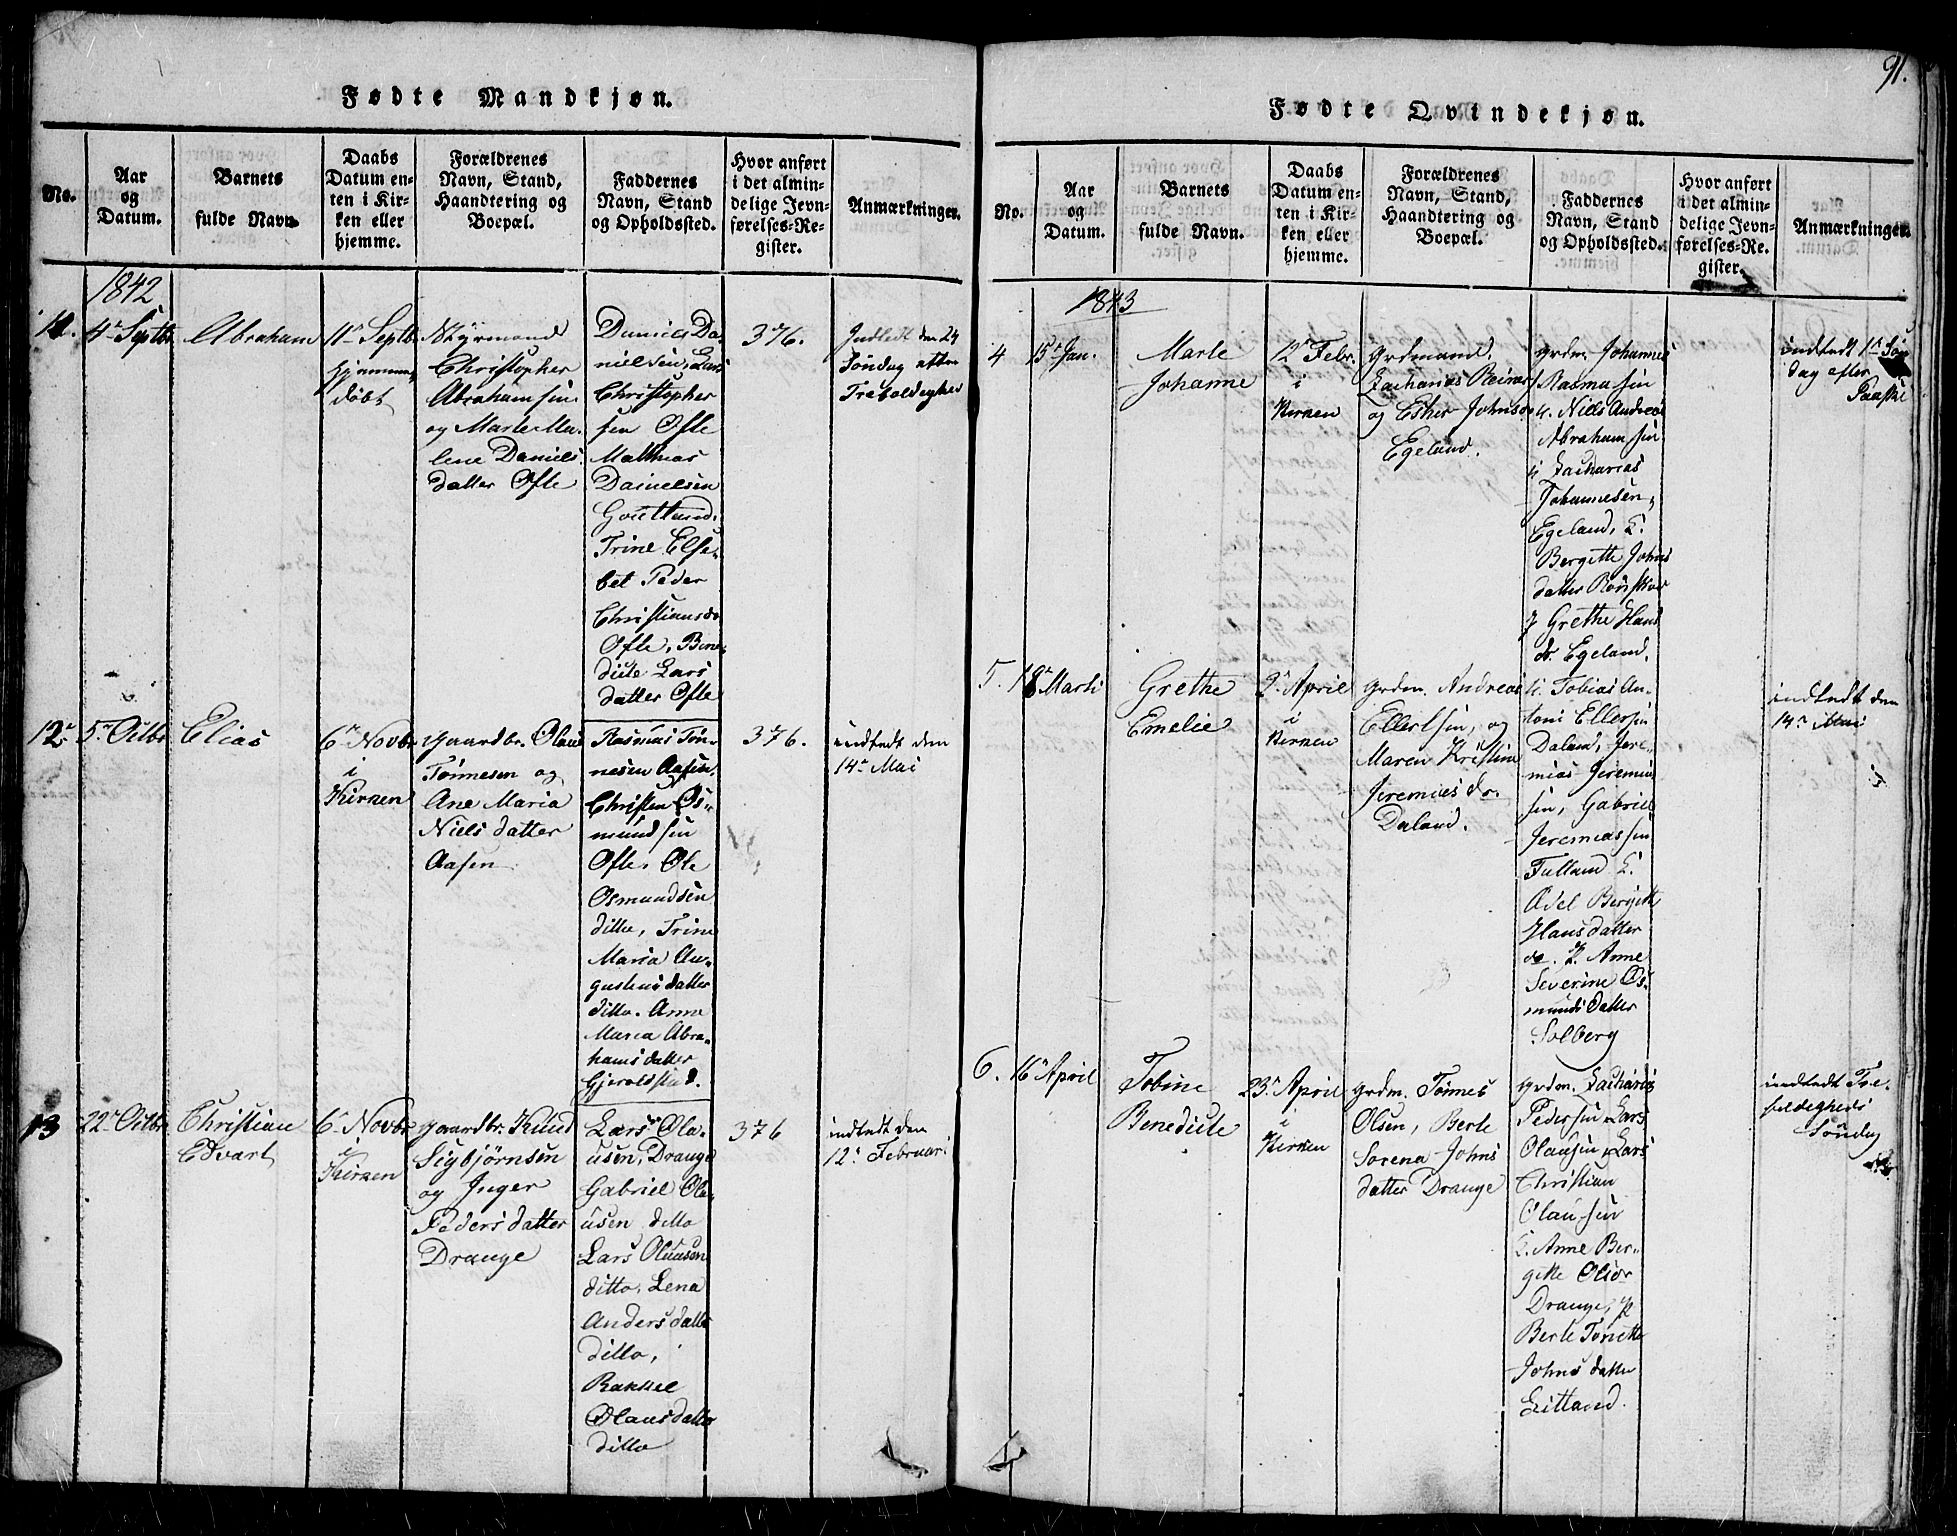 Fødte Mandkjøn.
No.
Aar
og
Datum.
Barnets
fulde Navn
Daabs
Datum en-
ten i Kir-
ken eller
hjemme.
Forældrenes
Navn, Stand,
Haandtering og
Boepæl.
Faddernes
Navn, Stand
og Opholdssted.
Hvor anført
i det almin-
delige Jevn-
førelses-Re-
gister.
Anmærkninger.
1842
11.
4de Septbr
Abraham
11te Septbr
hjemme
døbt
Styrmand
Christopher
Abrahamsen
og Marte Ma-
lene Daniels
datter Ofte
Daniel Da-
nielsen, Lars
Christopher
sen Ofte
Mathias
Danielsen
Trine Else-
bet Peder
Christiansdr
Ofte, Bene-
dicte Lars
datter Ofte
376.
Indledt den 24
Søndag efter
12.
5te Octbr
Elias
6te Novbr
i
Kirken
Gaardbr. Olaus
Tønnesen og
Ane Maria
Niels datter
Aasen
Rasmus Tøn-
nesen Aasen,
Christen Os-
mundsen
Ofte, Ole
Osmundsen
ditto, Trine
Maria Au-
gustinusdatter
ditto. Anne
Maria Abra-
hamsdatter
Gjeroldstad.
376.
indledt den
14de Mai
13
22de Octbr
Christian
Edvart
6te Novbr
i
Kirken
Gaardbr. Knud
Sigbjørnsen
og Inger
Peders datter
Drange
Lars Ola-
usen, Drange
Gabriel Ola-
usen ditto
Lars Olausen
ditto, Lena
Anders datter
ditto,
Rakkel
Olausdatter
ditto
376
indledt den
12te Februar
91.
Fødte Qvindekjøn.
No.
Aar
og
Datum.
Barnets
fulde Navn.
Daabs
Datum en-
ten i Kir-
ken eller
hjemme.
Forældrenes
Navn, Stand,
Haandtering og
Boepæl.
Faddernes
Navn, Stand
og Opholdssted.
Hvor anført
i det almin-
delige Jevn-
førelses-Re-
gister.
Anmærkninger.
1843
4
15de Jan.
Marte
Johanne
12te Febr.
i
Kirken
Grdmand.
Zacharias
og Esther Johnsdr
Egeland.
Grdm. Johannes
Rasmussen
u. Niels Andreas
Abrahamsen
u Zacharias
Johannesen,
Egeland, K.
Bergitte Johns
datter
P Grethe Hans
dr. Egeland.
indledt 1te Søn
dag efter
Paaske
5.
18de Marti
Grethe
Emelie
9de April
i
Kirken
Grdm. Andreas
Ellertsen, og
Maren Kristine
Jeremiesdr.
Daland.
u. Tobias An-
toni Ellertsen
Daland, Jere-
mias Jeremia
sen, Gabriel
Jeremiassen
Tulland K.
Adel Bergitte
Hansdatter
do. P. Anne
Severine Os-
munds datter
Solberg
indledt den
14de Mai
6.
16de April
Tobine
Benedicte
23de April
i
Kirken
Grdm. Tønnes
Olsen, Berte
Sorena Johns
datter Drange
Grdm. Zacharis
Pedersen Lars
Olausen, Lars
Christian
Olausen
K. Anne Ber-
gitte Olsdr
Drange, P
Berte Tonette
Johns datter
Eitland.
indtedt Tre-
foldigheds
Søndag